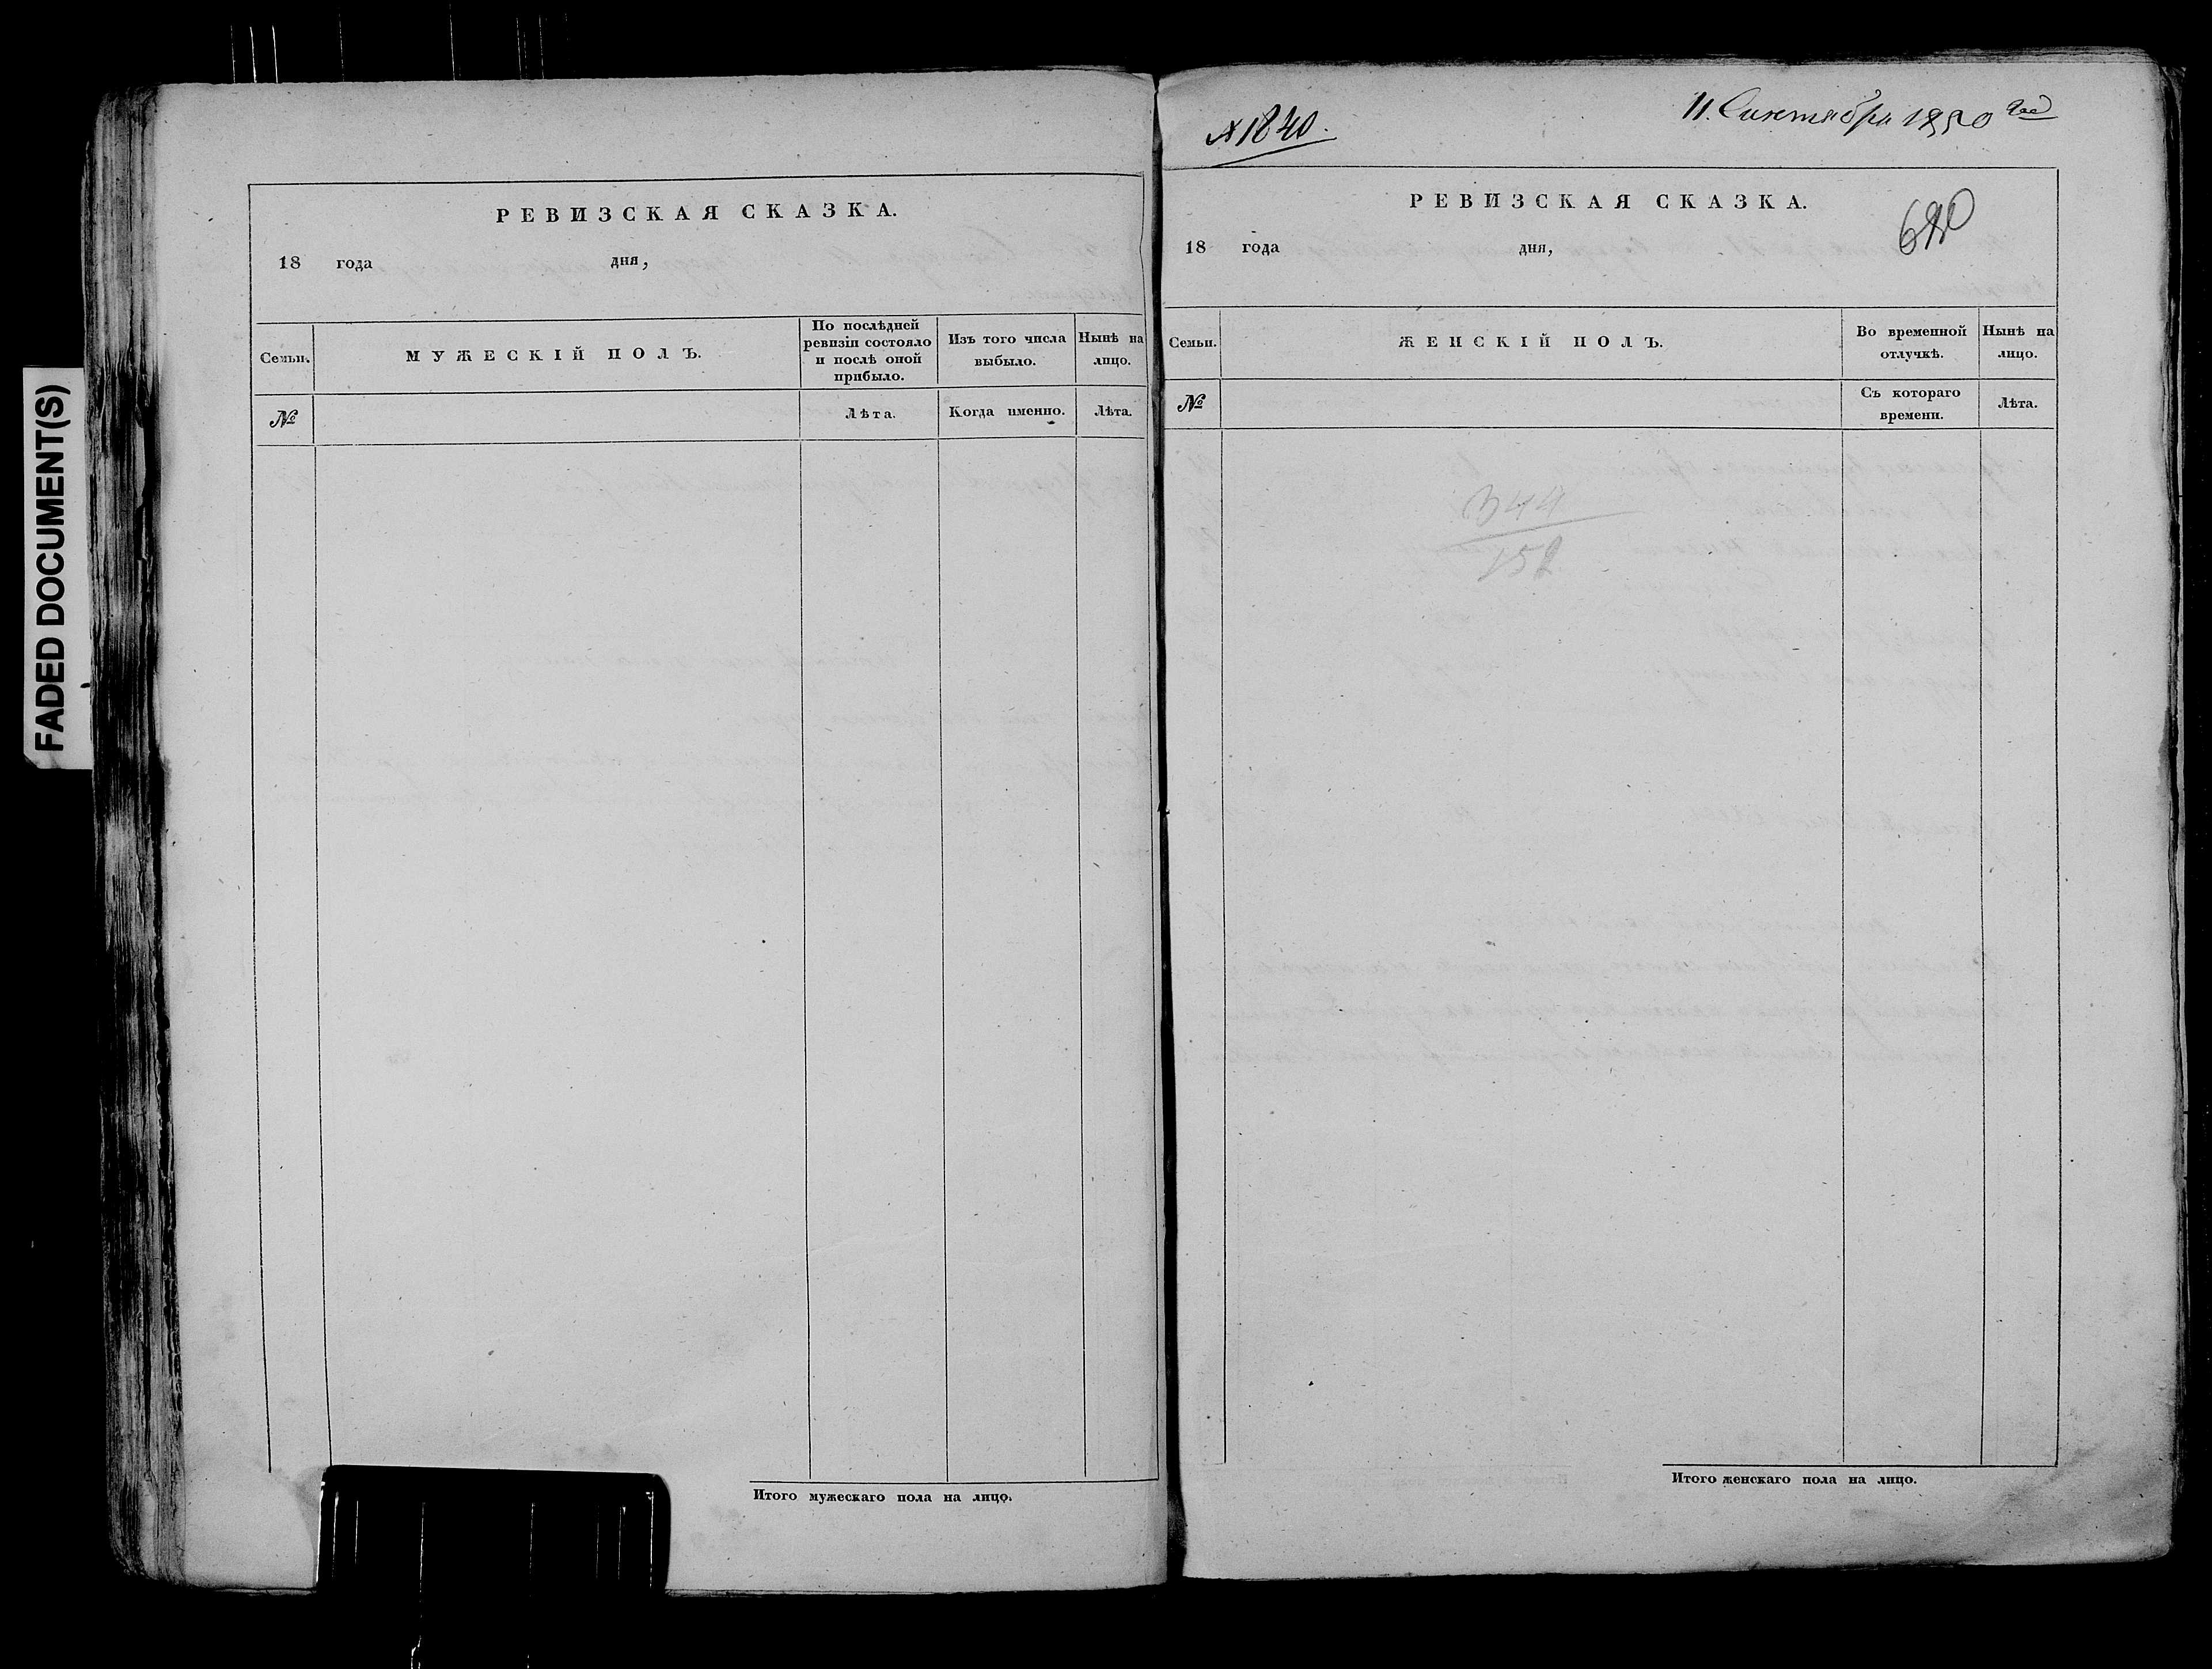 FADED DOCUMENT(S)
РЕВИЗСКАЯ СКАЗКА.
18 года дня,
Семьи.
МУЖЕСКІЙ ПОЛЪ.
По послѣдней ревизіи состояло и послѣ оной прибыло.
Изъ того числа выбыло.
Нынѣ на лицо.
№
Лѣта.
Когда именно.
Лѣта.
Итого мужескаго пола на лицо.
№ 1840.
11. Сентября 1850 год
РЕВИЗСКАЯ СКАЗКА.
18 года дня,
Семьи.
ЖЕНСКІЙ ПОЛЪ.
Во временной отлучкѣ.
Нынѣ на лицо.
№
Съ котораго времени.
Лѣта.
344
152
Итого женскаго пола на лицо.